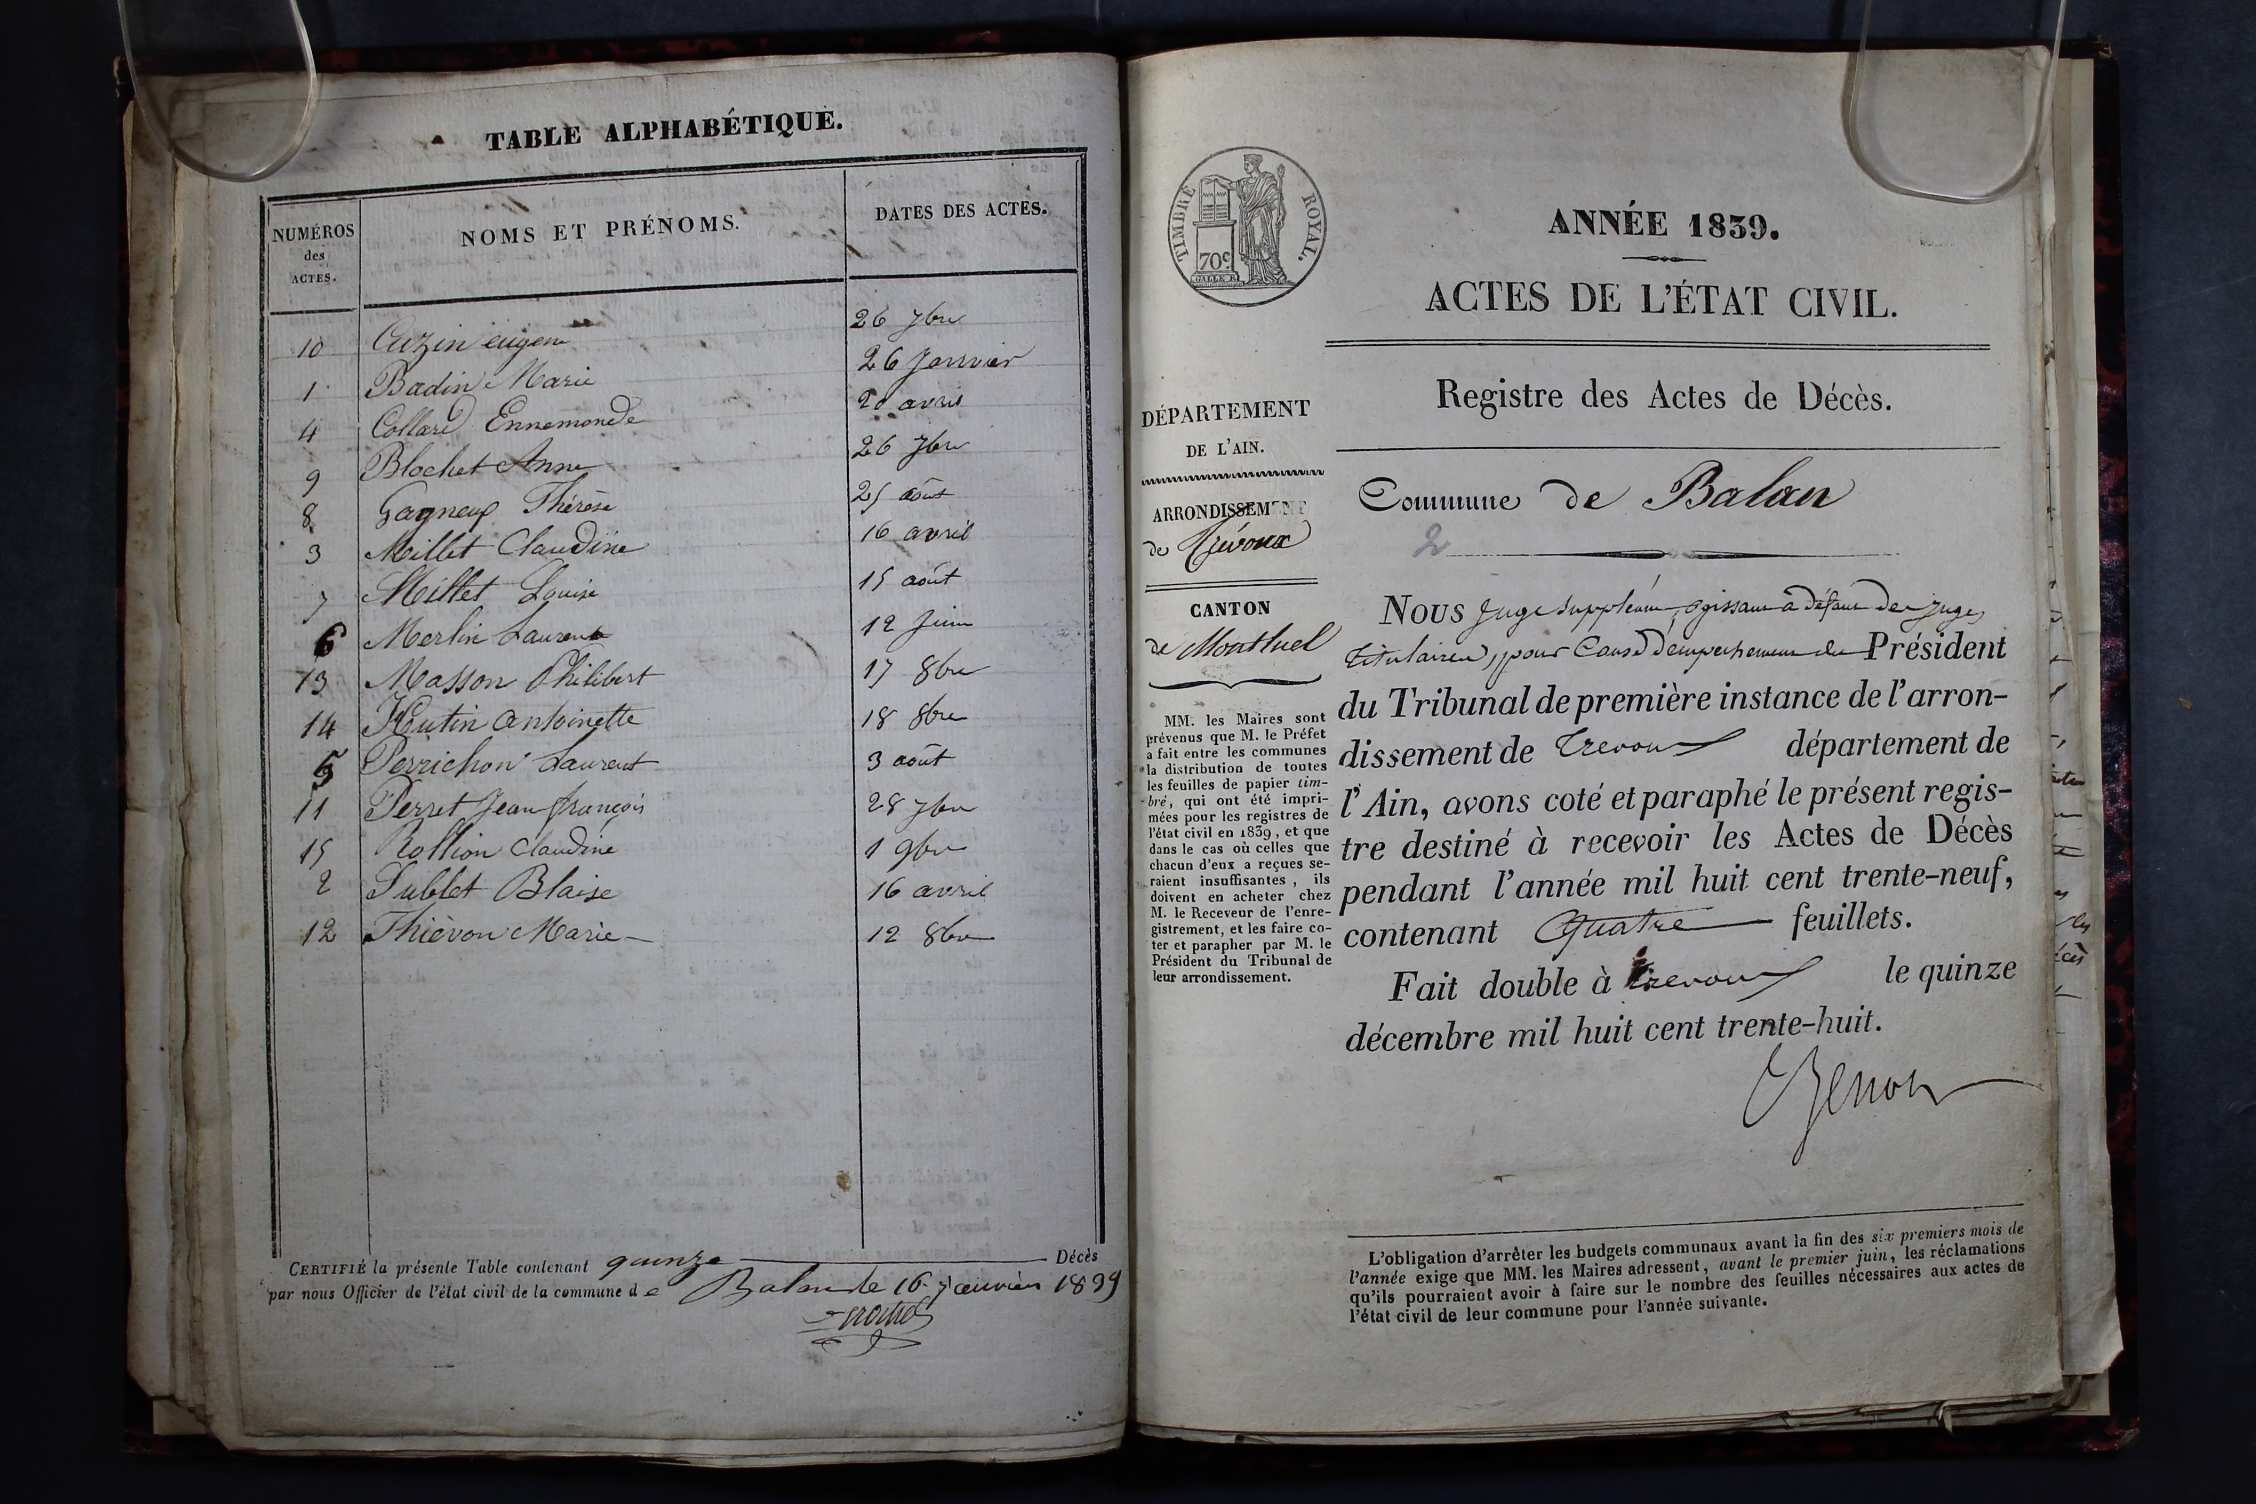 TABLE ALPHABÉTIQUE.
NUMÉROS des ACTES. NOMS ET PRÉNOMS. DATES DES ACTES.
10 Cuzin eugene 26 7bre
1 Badin Marie 26 Janvier
4 Collard Ennemonde 20 avril
9 Blochet Anne 26 7bre
8 Gagneux Thérèse 25 août
3 Millet Claudine 16 avril
7 Millet Louise 15 août
6 Merlin Laurent 12 Juin
13 Masson Philibert 17 8bre
14 Hutin Antoinette 18 8bre
5 Perrichon Laurent 3 août
11 Perret Jean françois 28 7bre
15 Rollion Claudine 1 9bre
2 Sublet Blaise 16 avril
12 Thiévon Marie 12 8bre
CERTIFIÉ la présente Table contenant quinze Décès
par nous Officier de l'état civil de la commune de Balan le 16 janvier 1839
TIMBRE ROYAL.
70c
ANNÉE 1839.
ACTES DE L'ÉTAT CIVIL.
Registre des Actes de Décès.
DÉPARTEMENT
DE L'AIN.
ARRONDISSEMENT
de Trévoux
CANTON
de Montluel
MM. les Maires sont
prévenus que M. le Préfet
a fait entre les communes
la distribution de toutes
les feuilles de papier tim-
bré, qui ont été impri-
mées pour les registres de
l'état civil en 1839, et que
dans le cas où celles que
chacun d'eux a reçues se-
raient insuffisantes, ils
doivent en acheter chez
M. le Receveur de l'enre-
gistrement, et les faire co-
ter et parapher par M. le
Président du Tribunal de
leur arrondissement.
Commune de Balan
2
Nous Juge Suppléant, agissant a défaut de juges
titulaires, pour Cause d'empechement du Président
du Tribunal de première instance de l'arron-
dissement de Trevoux département de
l'Ain, avons coté et paraphé le présent regis-
tre destiné à recevoir les Actes de Décès
pendant l'année mil huit cent trente-neuf,
contenant Quatre feuillets.
Fait double à Trevoux le quinze
décembre mil huit cent trente-huit.
L'obligation d'arrêter les budgets communaux avant la fin des six premiers mois de
l'année exige que MM. les Maires adressent, avant le premier juin, les réclamations
qu'ils pourraient avoir à faire sur le nombre des feuilles nécessaires aux actes de
l'état civil de leur commune pour l'année suivante.